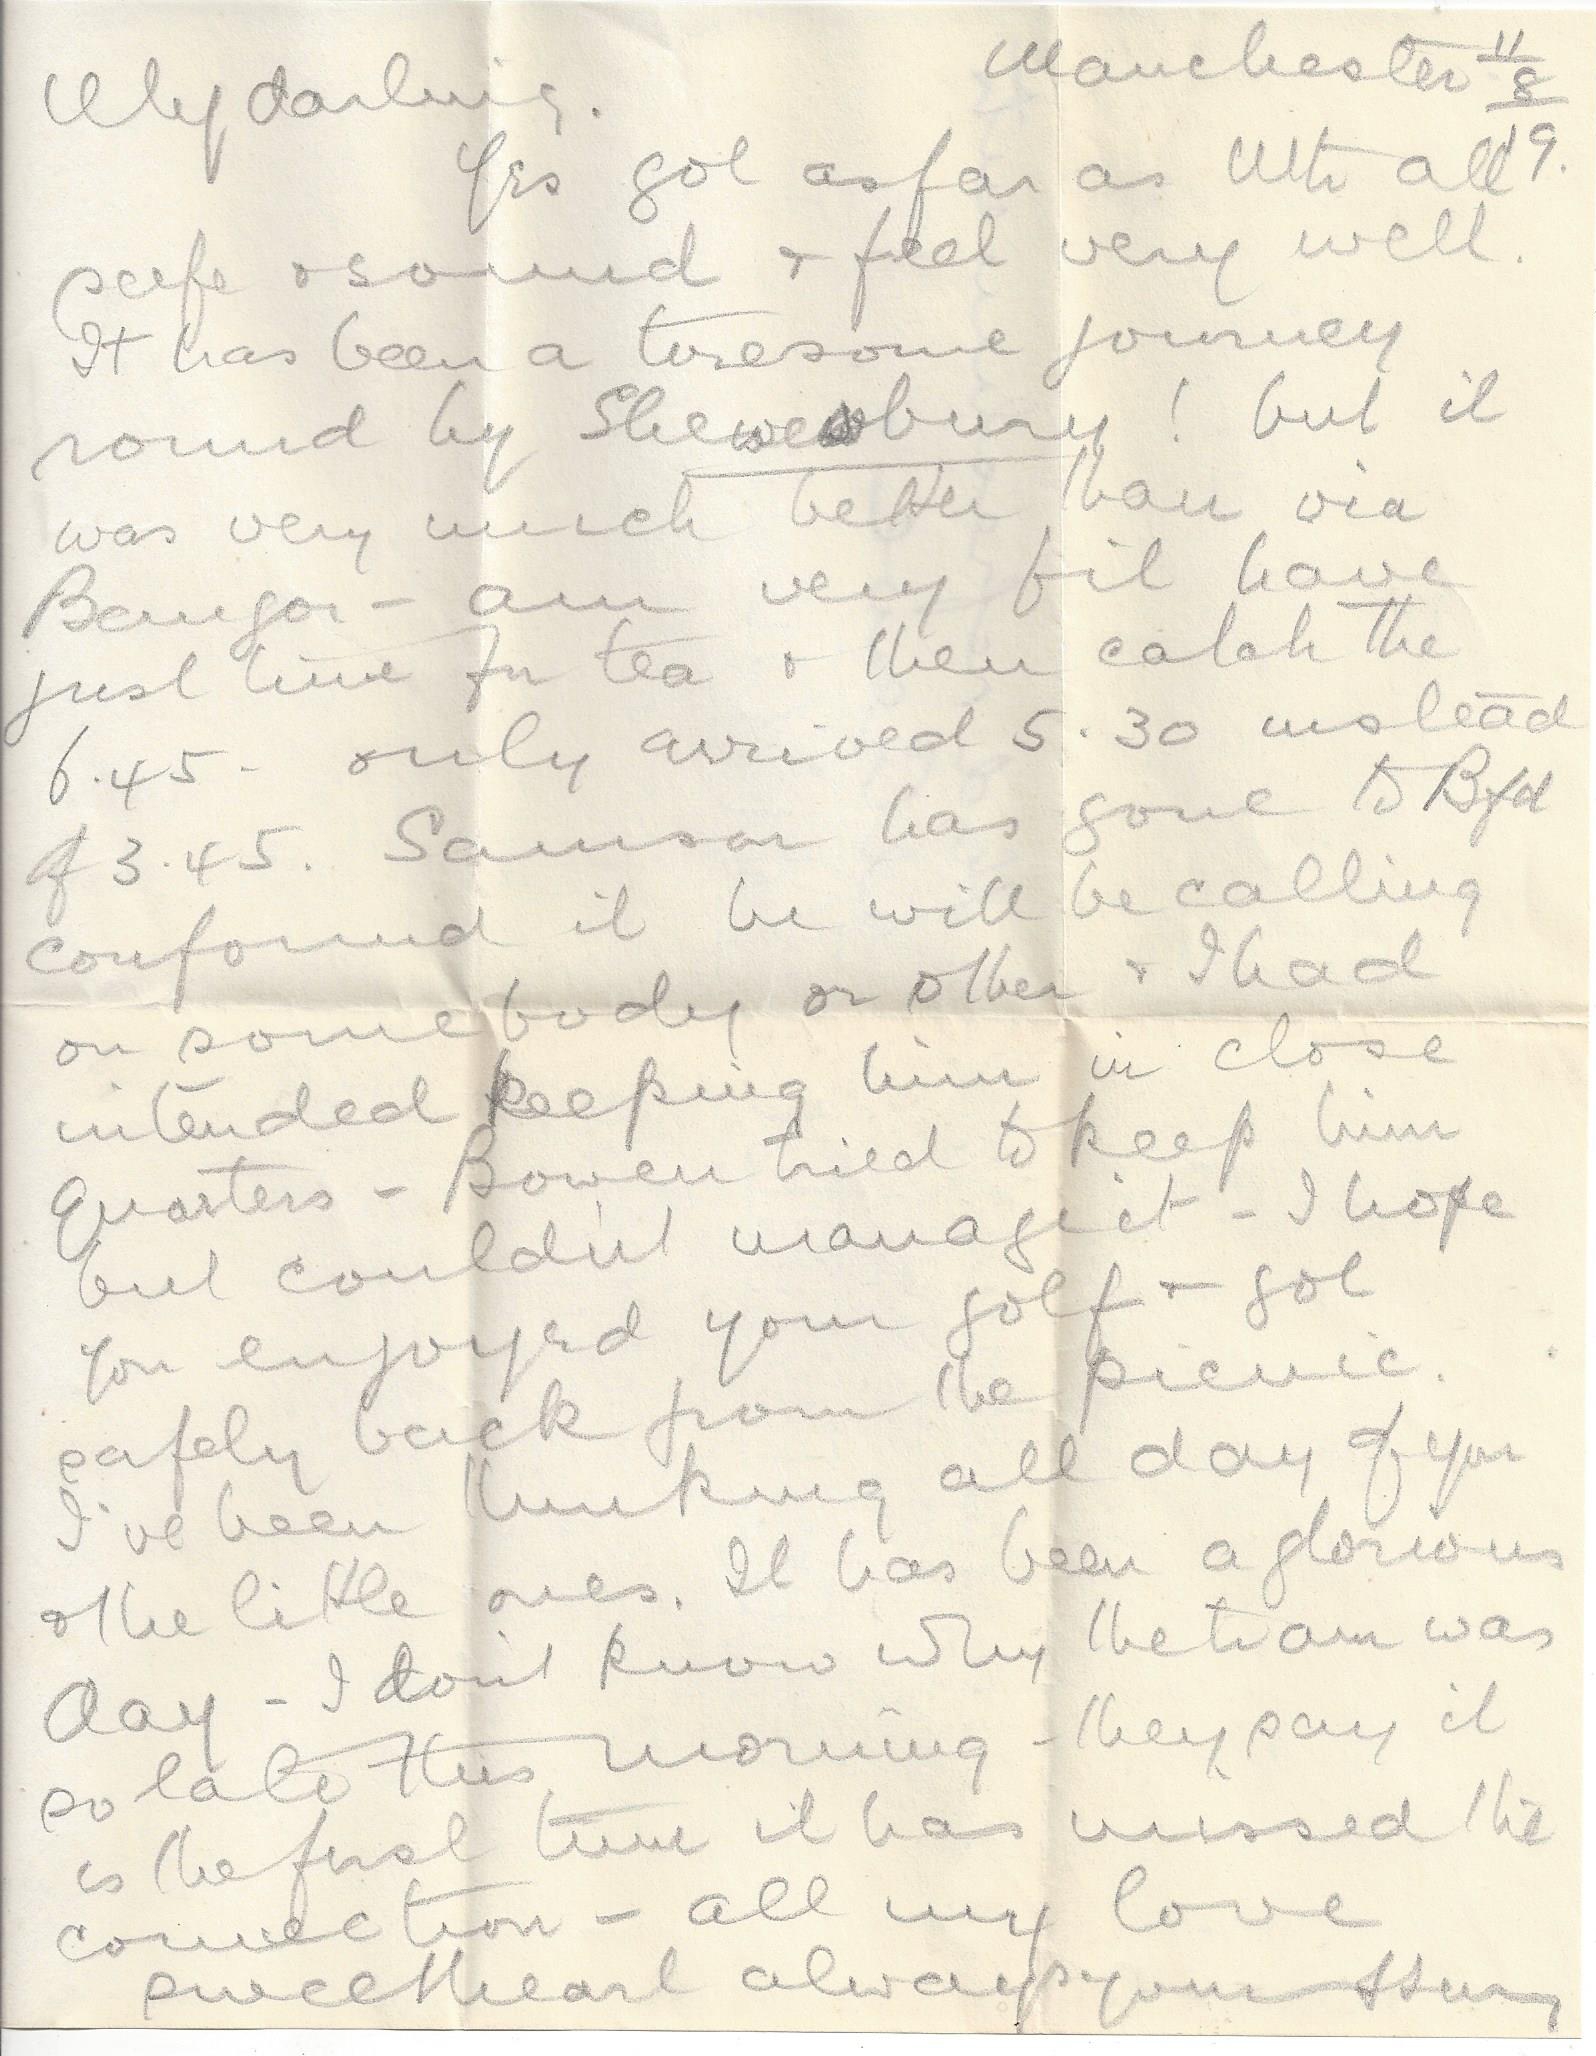 Manchester 11/8/19.
My darling.
Yes got as far as M/c all
safe & sound & feel very well.
It has been a tiresome journey
round by Shrewsbury! but it
was very much better than via
Bangor - am very fit have
just time for tea & then catch the
6.45 - only arrived 5.30 instead
of 3.45. Samson has gone to Bfd
confound it he will be calling
on somebody or other & I had
intended keeping him in close
quarters - Bowen tried to keep him
but couldn't manage it - I hope
you enjoyed your golf & got
safely back from the picnic.
I've been thinking all day of you
& the little ones. It has been a glorious
day - I don't know why the tram was
so late this morning - they say it
is the first time it has missed the
connection - all my love
sweetheart always your Harry